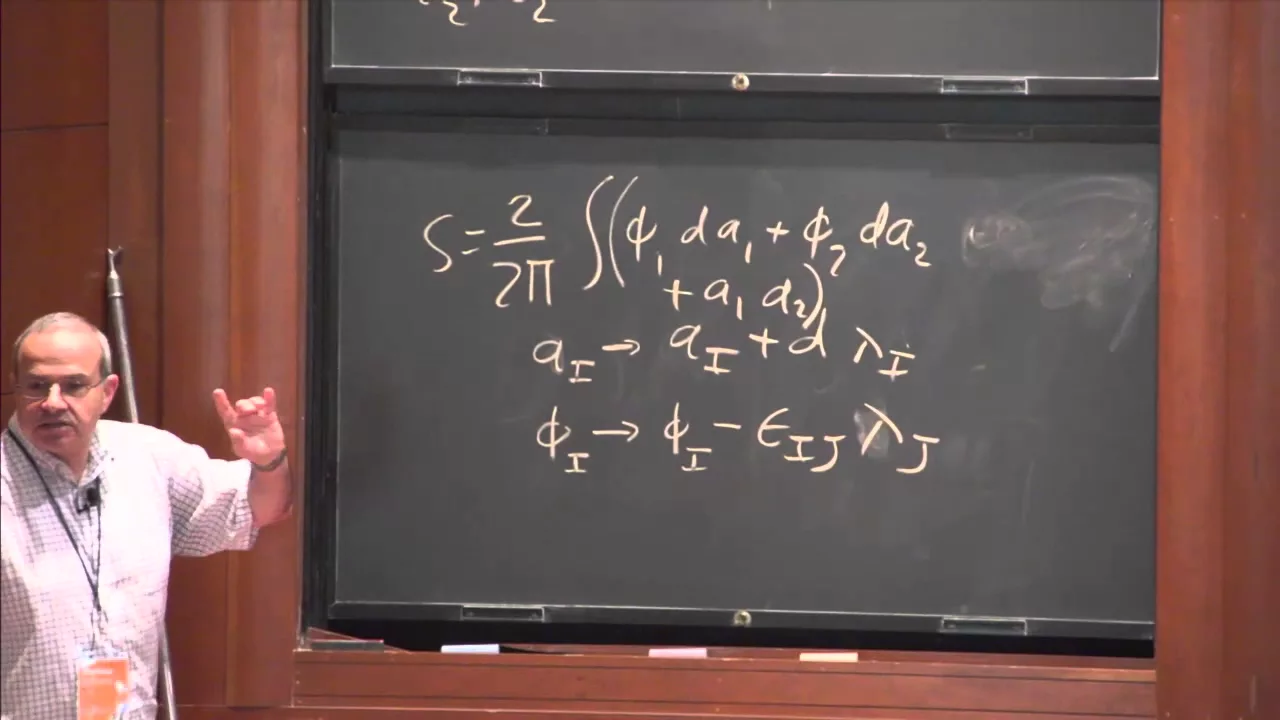 S = \frac{2}{2π} ∫ ( ϕ₁ da₁ + ϕ₂ da₂
+ a₁ a₂ )
a_I → a_I + d λ_I
ϕ_I → ϕ_I − ϵ_{IJ} λ_J